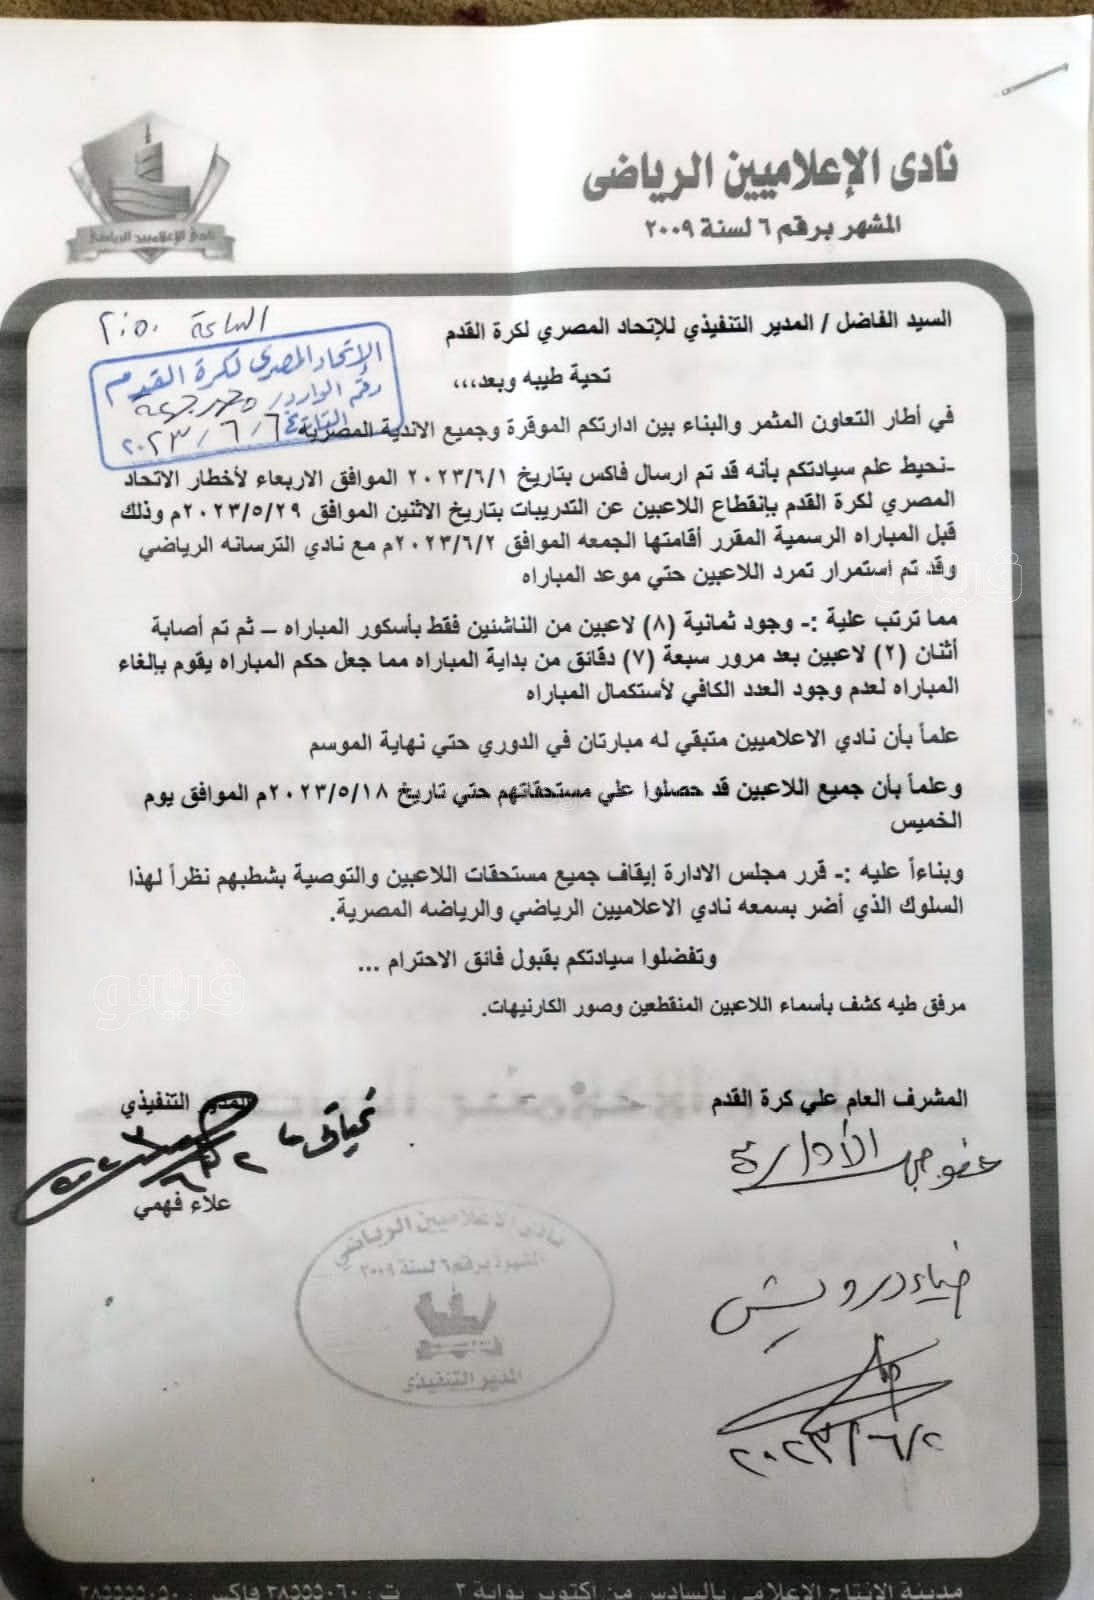 نادى الإعلاميين الرياضى
المشهر برقم ٦ لسنة ٢٠٠٩
نادى الإعلاميين الرياضى
السيد الفاضل / المدير التنفيذي للإتحاد المصري لكرة القدم
الساعة ٢:٥٠
الإتحاد المصرى لكرة القدم
رقم الوارد
التاريخ ٦/٦/٢٠٢٣
تحية طيبه وبعد،،،
في أطار التعاون المثمر والبناء بين ادارتكم الموقرة وجميع الاندية المصرية
-نحيط علم سيادتكم بأنه قد تم ارسال فاكس بتاريخ ٢٠٢٣/٦/١ الموافق الاربعاء لأخطار الاتحاد
المصري لكرة القدم بإنقطاع اللاعبين عن التدريبات بتاريخ الاثنين الموافق ٢٠٢٣/٥/٢٩م وذلك
قبل المباراه الرسمية المقرر أقامتها الجمعه الموافق ٢٠٢٣/٦/٢م مع نادي الترسانه الرياضي
وقد تم إستمرار تمرد اللاعبين حتي موعد المباراه
مما ترتب علية :- وجود ثمانية (٨) لاعبين من الناشئين فقط بأسكور المباراه – ثم تم أصابة
أثنان (٢) لاعبين بعد مرور سبعة (٧) دقائق من بداية المباراه مما جعل حكم المباراه يقوم بإلغاء
المباراه لعدم وجود العدد الكافي لأستكمال المباراه
علماً بأن نادي الاعلاميين متبقي له مبارتان في الدوري حتي نهاية الموسم
وعلماً بأن جميع اللاعبين قد حصلوا علي مستحقاتهم حتي تاريخ ٢٠٢٣/٥/١٨م الموافق يوم
الخميس
وبناءاً عليه :- قرر مجلس الادارة إيقاف جميع مستحقات اللاعبين والتوصية بشطبهم نظراً لهذا
السلوك الذي أضر بسمعه نادي الاعلاميين الرياضي والرياضه المصرية.
وتفضلوا سيادتكم بقبول فائق الاحترام ...
مرفق طيه كشف بأسماء اللاعبين المنقطعين وصور الكارنيهات.
فيتو
فيتو
المشرف العام علي كرة القدم
المدير التنفيذي
عضو مجلس الأدارة
علاء فهمي
ضياء درويش
٢٠٢٣/٦/٢
نادى الاعلاميين الرياضي
المشهرة برقم ٦ لسنة ٢٠٠٩
المدير التنفيذى
مدينة الإنتاج الإعلامى بالسادس من أكتوبر بوابة ٣ ت : ٣٨٥٥٥٠٦٠ فاكس : ٣٨٥٥٥٠٥٠